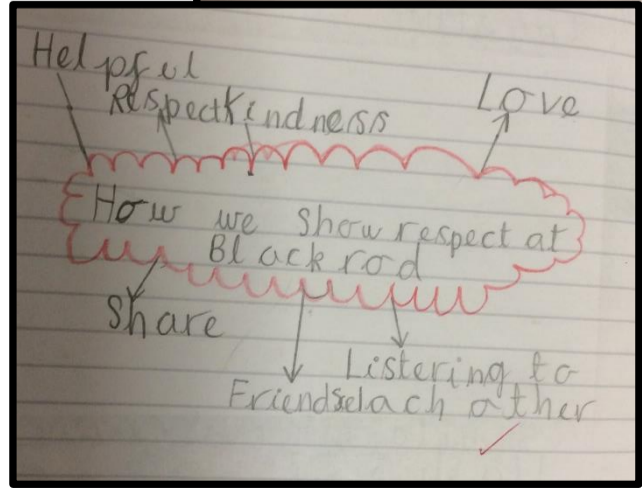 Helpful
Respect Kindness
Love
How we show respect at
Blackrod
Share
Listering to
Friends each other